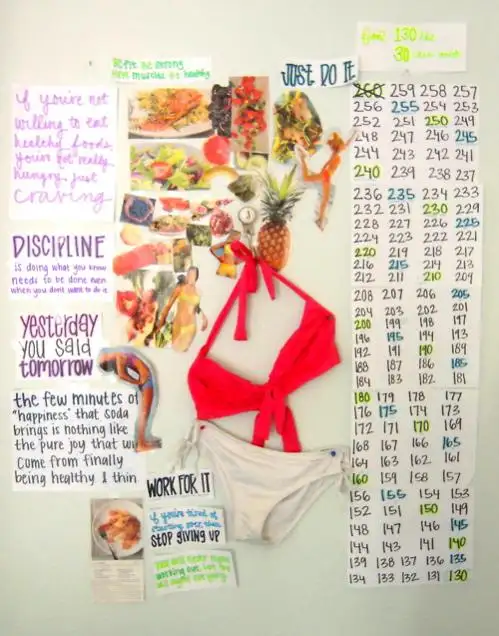 Be fit Be strong
JUST DO IT
Goal 130 lbs
30
If you're not
willing to eat
healthy foods,
you're not really
hungry, just
craving
DISCIPLINE
is doing what you know
needs to be done even
when you don't want to do it.
Yesterday
YOU SAID
tomorrow
the few minutes of
"happiness" that soda
brings is nothing like
the pure joy that wi
come from finally
being healthy & thin
WORK FOR IT
if you're tired of
starting over, then
STOP GIVING UP
260 259 258 257
256 255 254 253
252 251 250 249
248 247 246 245
244 243 242 241
240 239 238 237
236 235 234 233
232 231 230 229
228 227 226 225
224 223 222 221
220 219 218 217
216 215 214 213
212 211 210 209
208 207 206 205
204 203 202 201
200 199 198 197
196 195 194 193
192 191 190 189
188 187 186 185
184 183 182 181
180 179 178 177
176 175 174 173
172 171 170 169
168 167 166 165
164 163 162 161
160 159 158 157
156 155 154 153
152 151 150 149
148 147 146 145
144 143 141 140
139 138 137 136 135
134 133 132 131 130